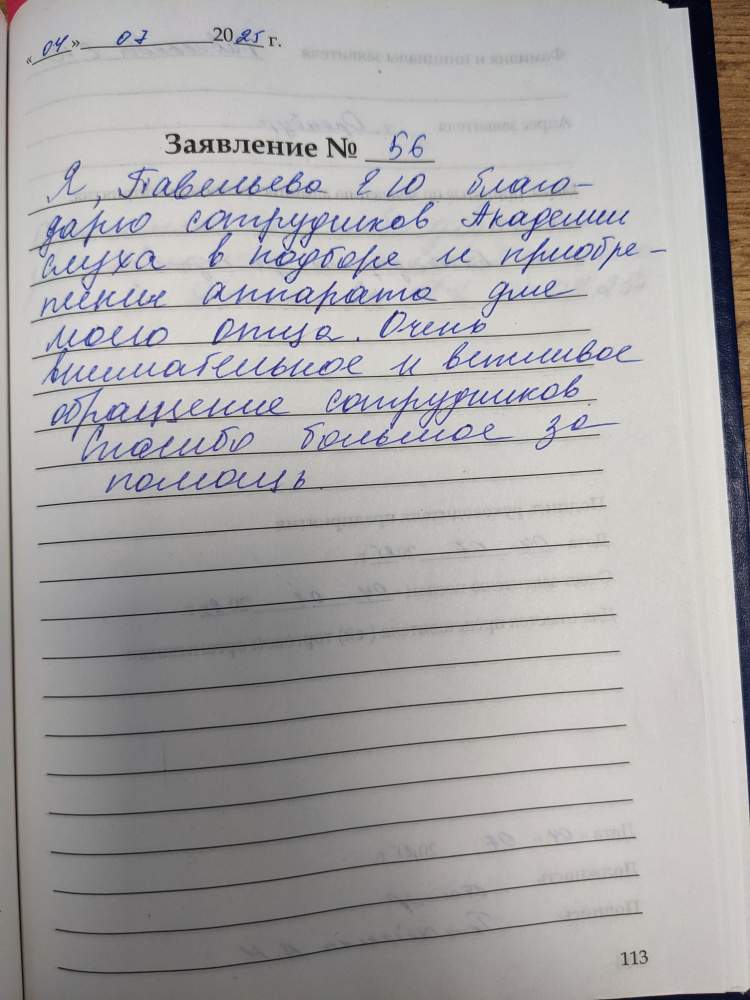 «04» 07 2025 г.
Заявление № 56
Я, Павельева Е Ю благо-
дарю сотрудников Академии
слуха в подборе и приобре-
тении аппарата для
моего отца. Очень
внимательное и вежливое
обращение сотрудников.
Спасибо большое за
помощь.
113